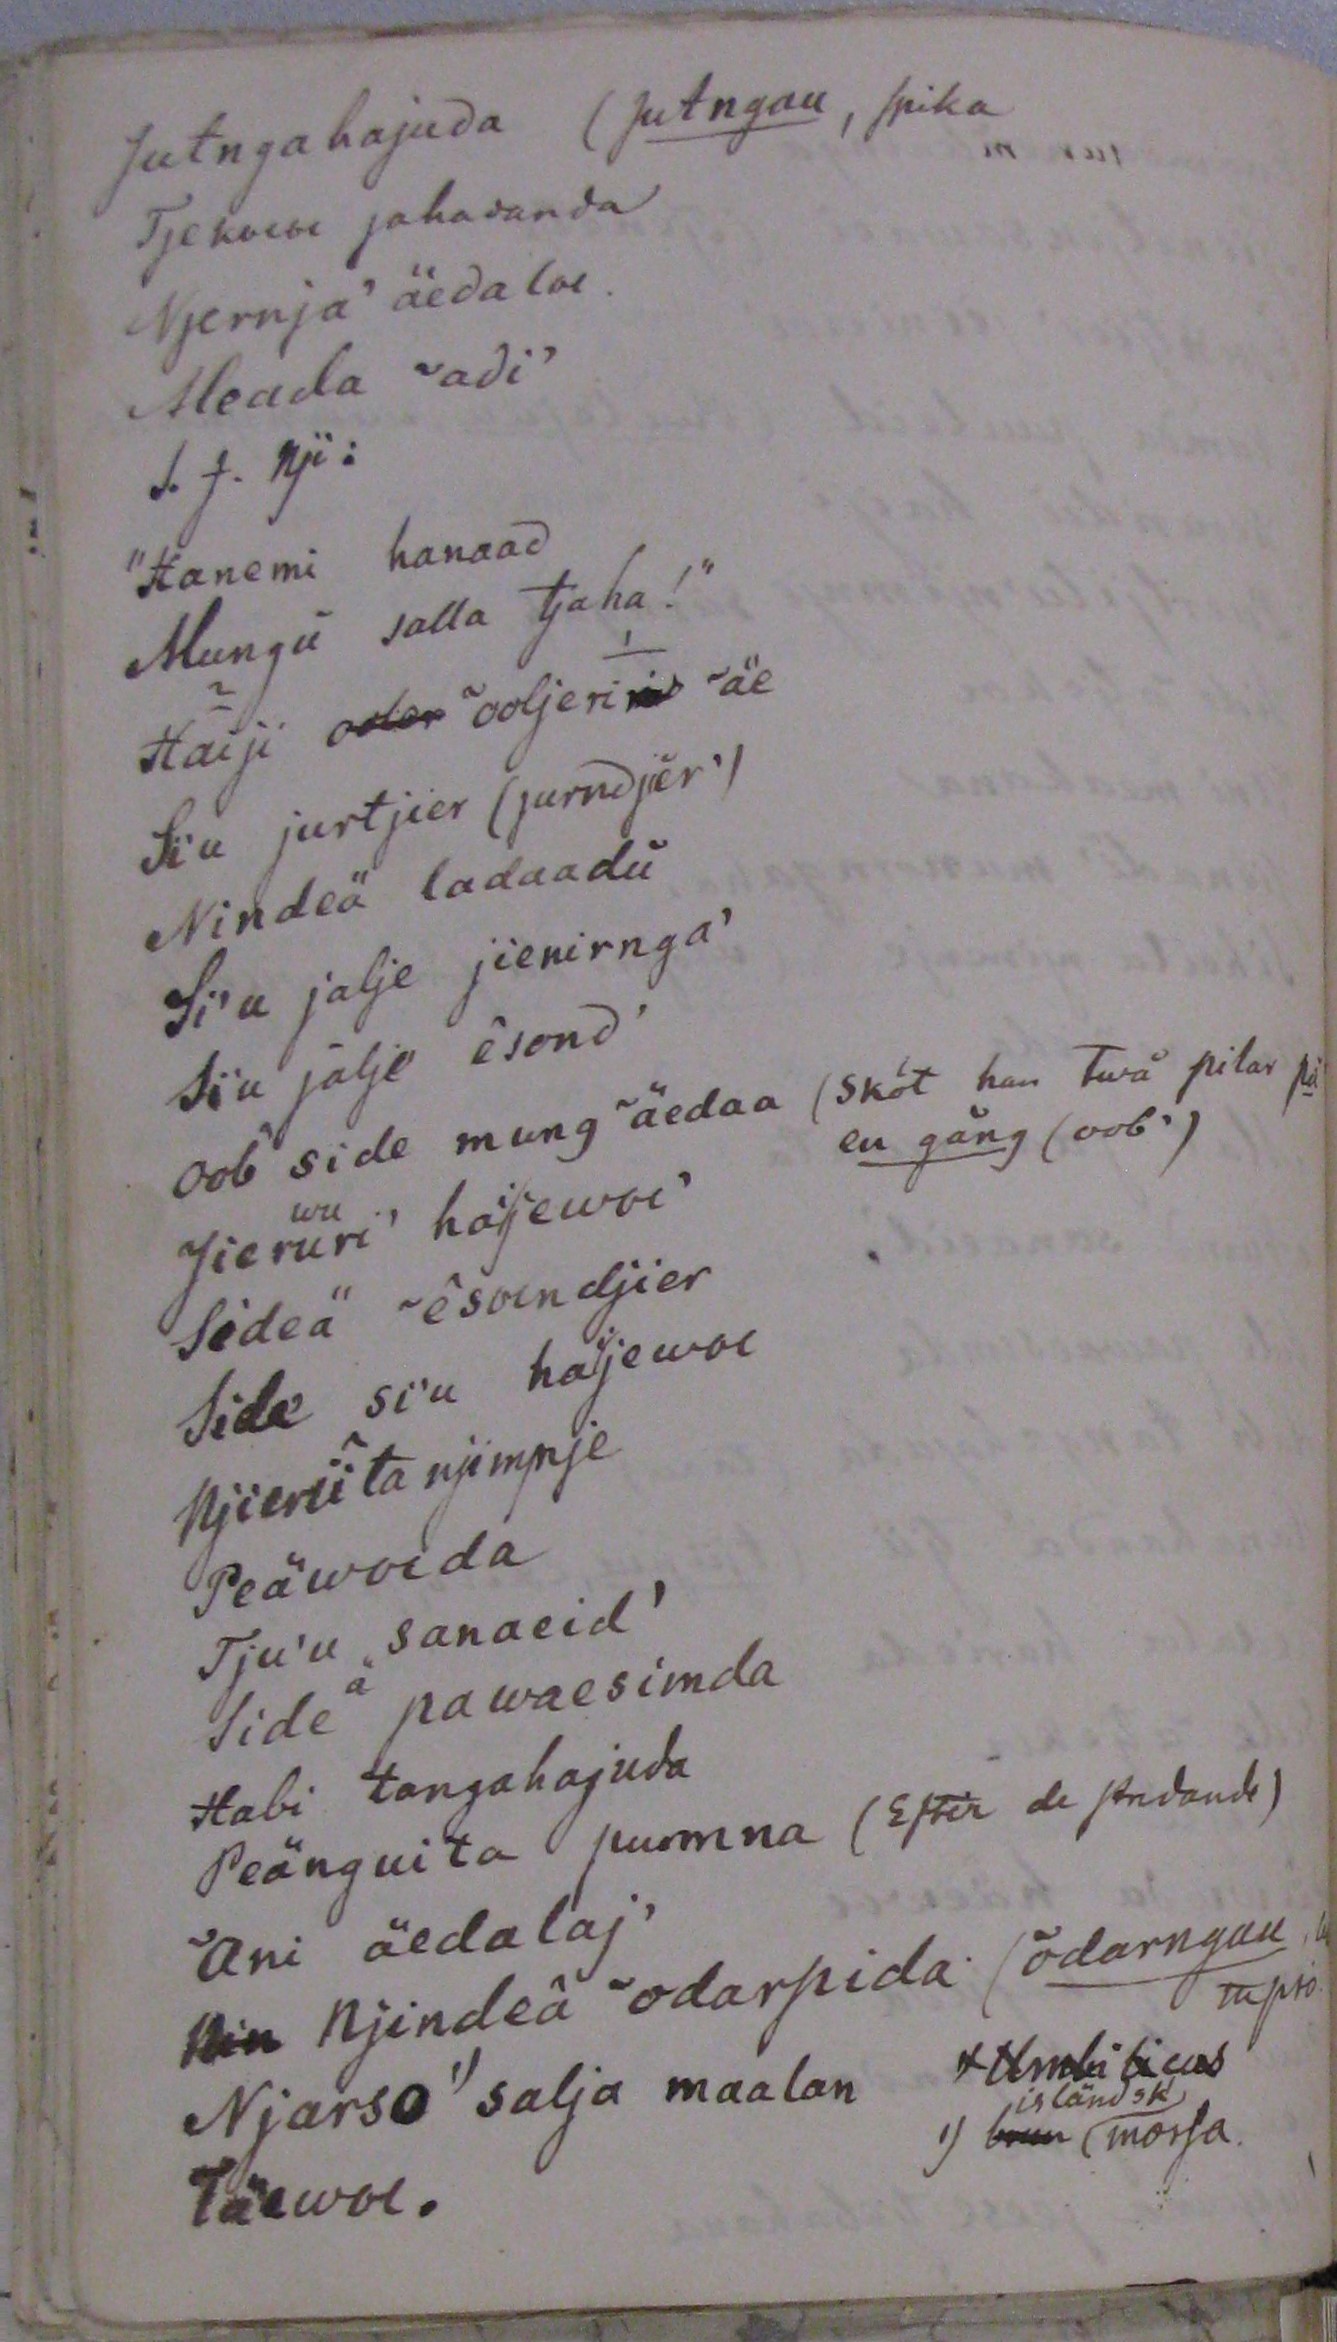 Jutngahajuda (Jutngau, spika
Tjekoeoe jahadanda
Njernja' äedaloe.
Meada ˜adi'
S. J. Nji:
"Hanemi hanaad
Mungu salla tjaha!"
Haiji ˜ooljeri ˜äe
Si'u jurtjier (jurndjier')
Nindeä ladaadu
Si'u jalje jienirnga'
Si'u jalje êsond'
Oob' side mung ˜äedaa (Sköt han Twå pilar på
en gång (oob')
Jieruri' häijewoe'
wu
Sideä ˜êsoendjier
Side si'u haijewoe
Njieruita njimnje
Peäwoeda
Tju'u sanaeid'
Sideä pawaesimda
Habi tangahajuda
Peänguita pumna (Efter de
˜Ani äedalaj'
Njindeä ˜odarpida (˜odarngau,
Njarso 1) salja maalan
isländsk
1) (mossa.
Täewoe.